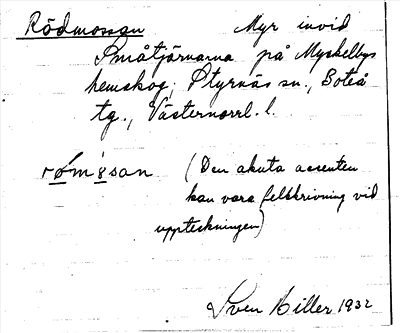 Rödmossan Myr invid
Småtjärnarna på Myckelbys
hemskog, Styrnäs sn., Boteå
tg., Västernorrl. l.
rǿm'ȣsan (Den akuta accenten
kan vara felskrivning vid
uppteckningen)
Sven Hiller 1932